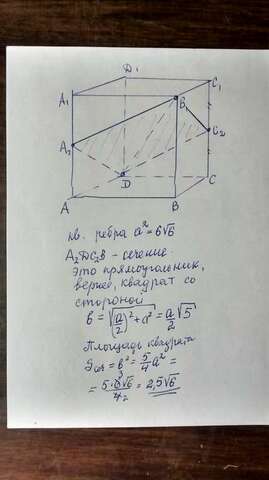 D₁
C₁
A₁
B₁
C₂
A₂
D
C
A
B
кв. ребра a²=6√6
A₂DC₂B - сечение.
Это прямоугольник,
вернее, квадрат со
стороной
b = √((a/2)² + a²) = a/2 √5
Площадь квадрата
Sсеч = b² = 5/4 a² =
= 5·6√6/4 = 2,5√6